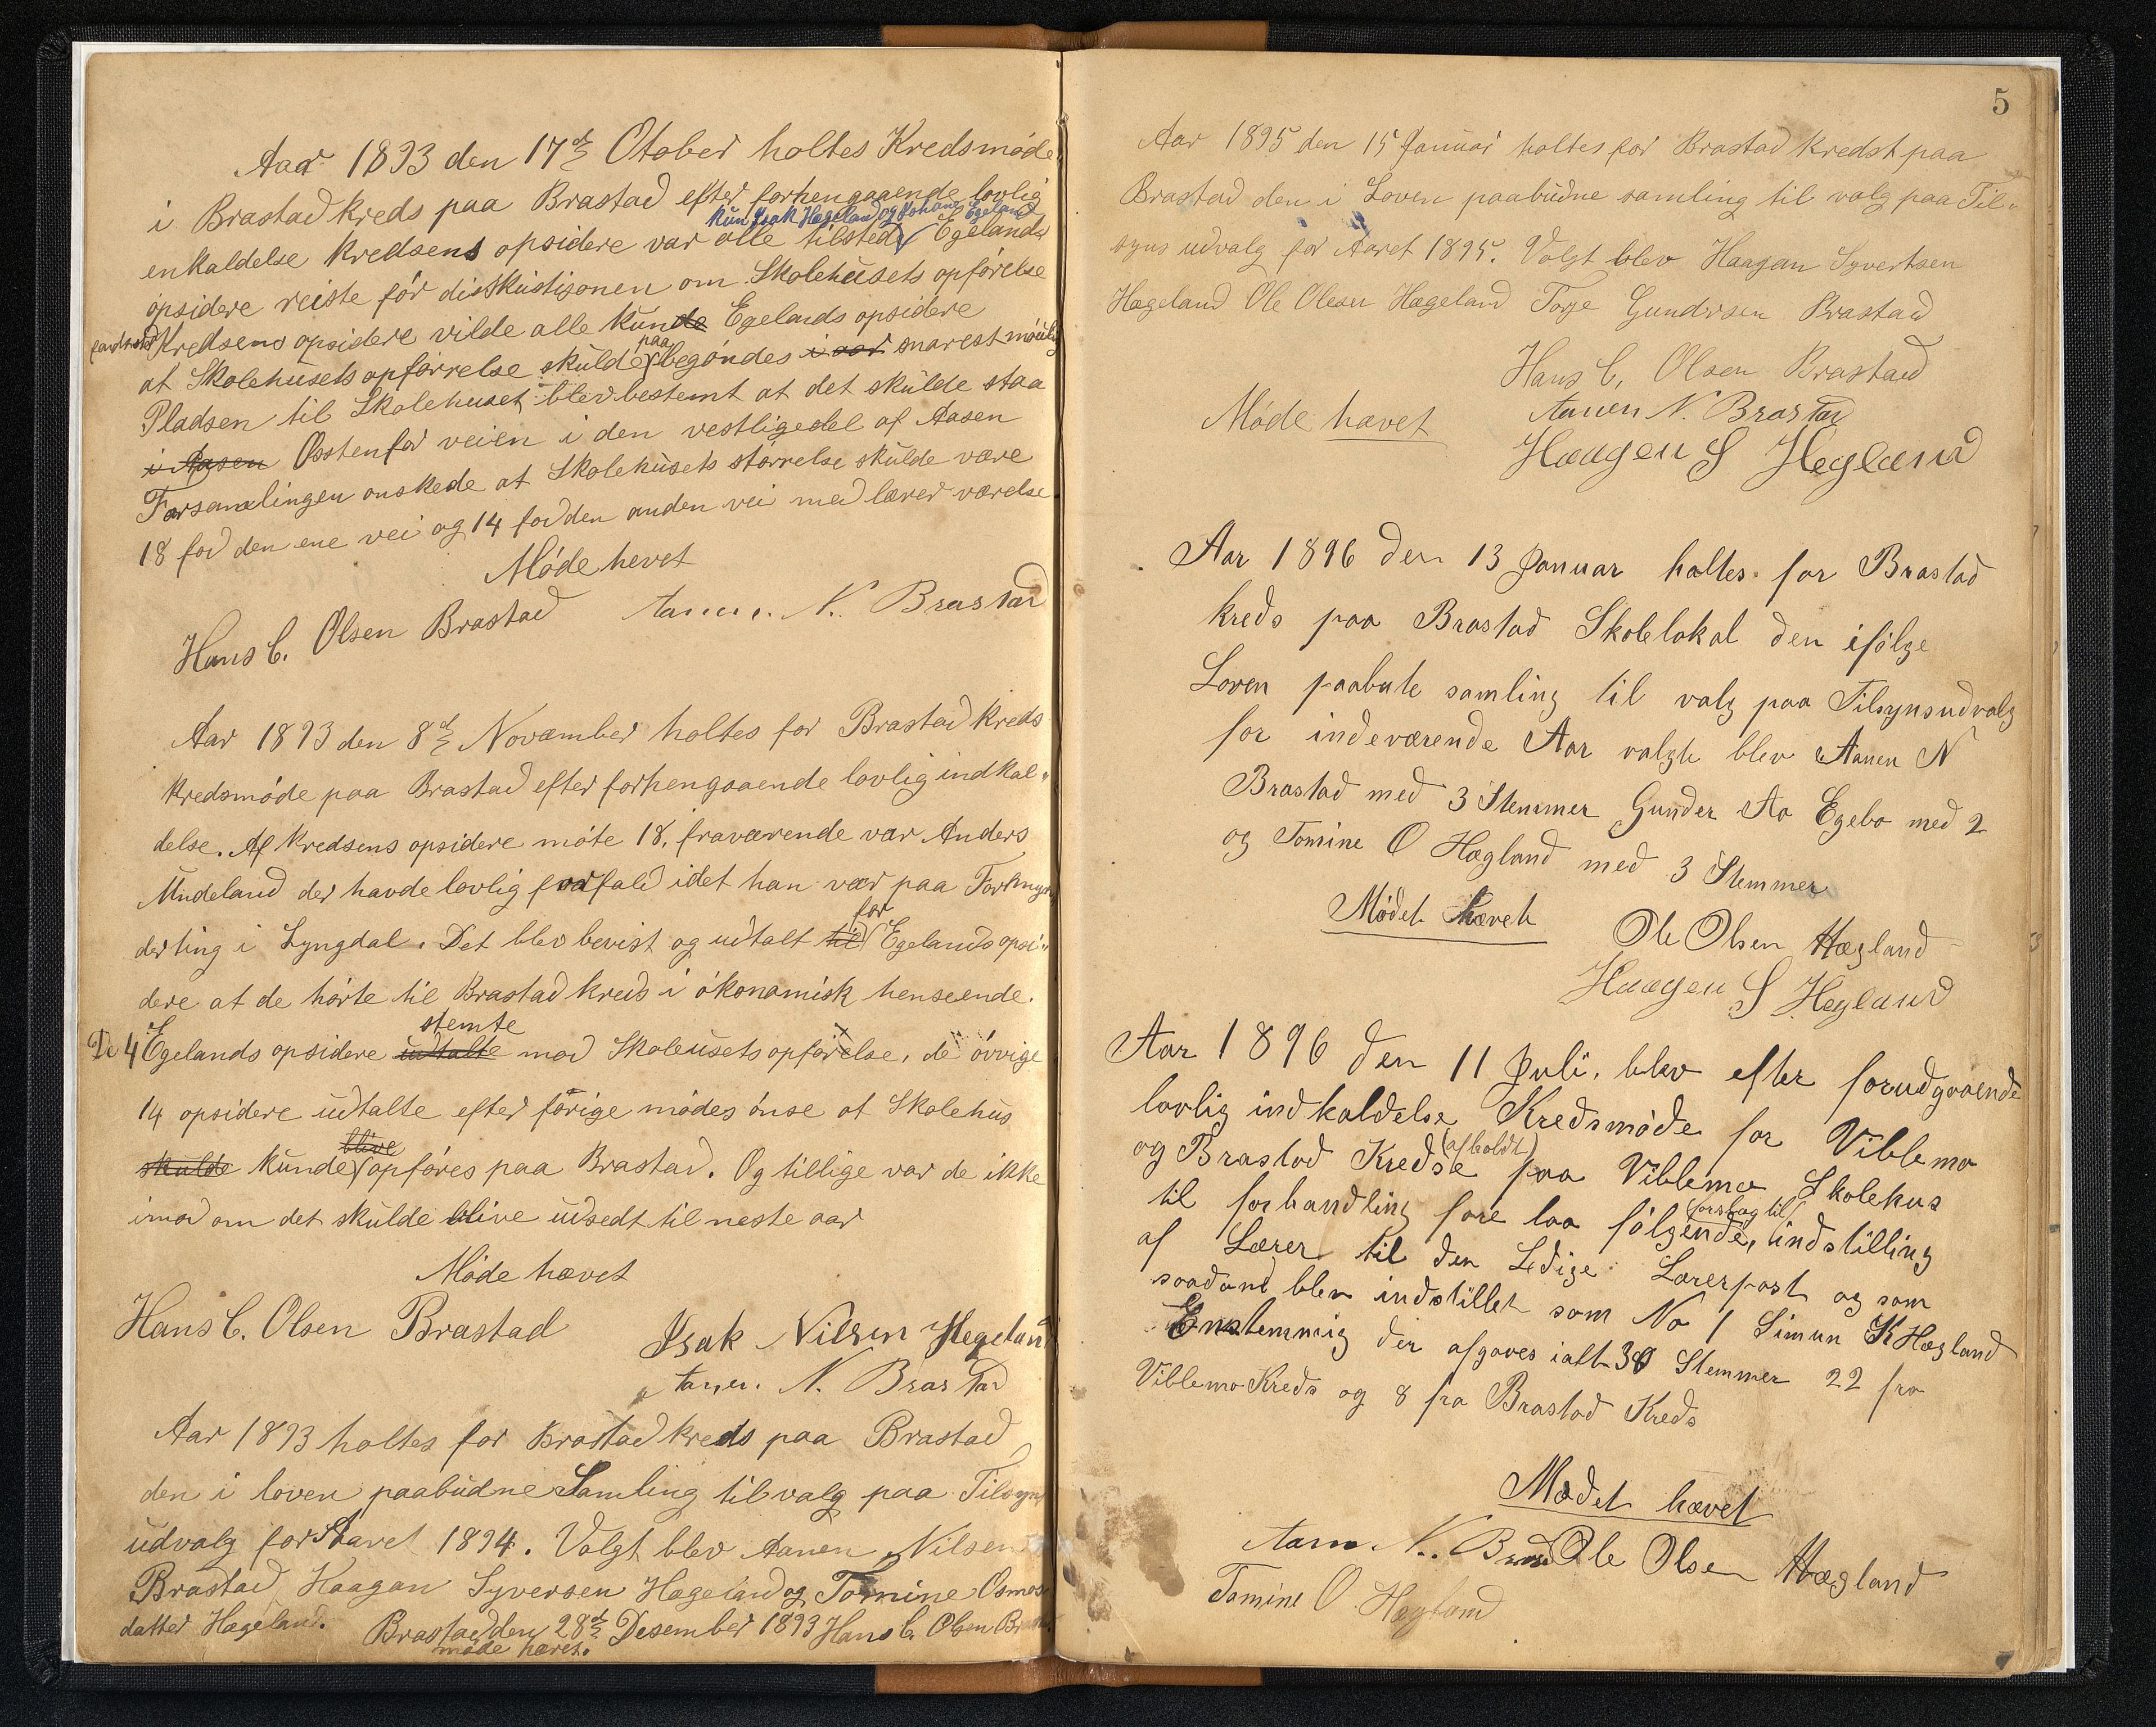 Aar 1893 den 17de Otober holtes Kredsmøde
i Brastad kreds paa Brastad efter forhengaaende lovlig
kun Isak Hægeland og Johane Egeland
enkaldelse kredsens opsidere var alle tilsted Egelands
opsidere reiste før diskustisonen om Skolehusets opførelse
Kredsens opsidere vilde alle kunde Egelands opsidere
paa
at Skolehusets opførrelse skulde begøndes i aar snarest møulig
Pladsen til Skolehuset blev bestemt at det skulde staa
i Aasen Osstenfor veien i den vestligedel af Aasen
Forsamlingen ønskede at Skolehusets størrelse skulde være
18 fod den ene vei og 14 fod den anden vei med lærer værelse.
Møde hevet
Hans C. Olsen Brastad Aanen N. Brastad
Aar 1893 den 8de November holtes for Brastad kreds
kredsmøde paa Brastad efter forhengaaende lovlig indkal-
delse. Af kredsens opsidere møte 18, fraværende var Anders
Mudeland der havde lovlig forfald idet han var paa Formyn
for
derting i Lyngdal. Det blev bevist og udtalt til Egelands opsi-
dere at de hørte til Brastad kreds i økonomisk henseende.
stemte
De 4 Egelands opsidere udtalte mod Skoleusets opførelse, de øvrige
14 opsidere udtalte efter førige mødes ønse at Skolehus
blive
skulde kunde opføres paa Brastad. Og tillige var de ikke
imod om det skulde blive udsedt til neste aar
Møde hævet
Hans C. Olsen Brastad
Isak Nilsen Hegeland
Aanen. N. Brastad
Aar 1893 holtes for Brastad kreds paa Brastad
den i loven paabudne Samling til valg paa Tilsyns
udvalg for Aaret 1894. Valgt blev Aanen Nilsen
Brastad Haagan Syversen Hægeland og Tomine Osmos
datter Hægeland. Brastad den 28de Desember 1893 Hans C. Olsen Brastad
møde hævet.
5
Aar 1895 den 15 Januar holtes for Brastad kredst paa
Brastad den i Loven paabudne samling til valg paa Til-
syns udvalg for Aaret 1895. Valgt blev Haagan Syvertsen
Hægeland Ole Olesen Hægeland Torje Gundersen Brastad
Hans C. Olsen Brastad
Møde hævet Aanen N. Brastad
Haagen S Hegland
Aar 1896 den 13 Januar holtes for Brastad
kreds paa Brastad Skolelokal den ifølge
Loven paabute samling til valg paa Tilsynsudvalg
for indeværende Aar valgte blev Aanen N
Brastad med 3 Stemmer Gunder Aa Egebo med 2
og Tomine O Hægland med 3 Stemmer
Mødet hævet Ole Olsen Hægland
Haagen S Hegland
Aar 1896 den 11 Juli. blev efter forudgaaende
lovlig indkaldelse Kredsmøde for Viblemo
(afholdt)
og Brastad Kredse paa Viblemo Skolehus
forslag til
til forhandling fore laa følgende, indstilling
af Lærer til den Ledige Lærerpost og som
saadand blev indstillet som No 1 Simun K Hægland
Enstemmig der afgaves ialt 30 Stemmer 22 fra
Viblemo Kreds og 8 fra Brastad Kreds
Mødet hævet
Aanen N. Brastad Ole Olsen Hægland
Tomine O. Hægland